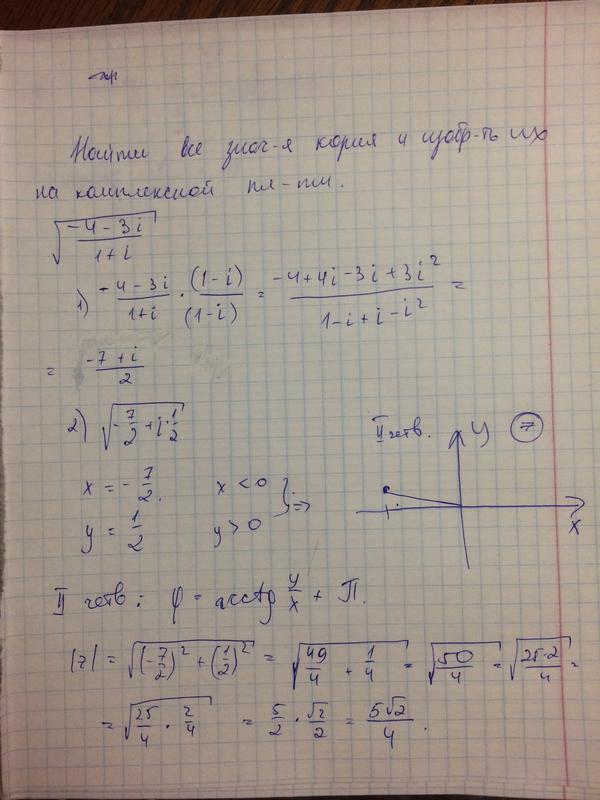 Найти все знач-я корня и изобр-ть их
на комплексной пл-ти.
√((-4-3i)/(1+i))
1) (-4-3i)/(1+i) · (1-i)/(1-i) = (-4+4i-3i+3i²)/(1-i+i-i²) =
= (-7+i)/2
2) √(-7/2+i·1/2)
II четв. y 7
x = -7/2. x < 0 } ⇒
y = 1/2 y > 0
x
II четв: φ = arctg y/x + π.
|z| = √((-7/2)²+(1/2)²) = √(49/4 + 1/4) = √(50/4) = √(25·2/4) =
= √(25/4 · 2/4) = 5/2 · √2/2 = 5√2/4.